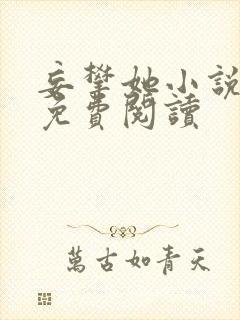 妄攀她小說
免費閱讀
萬古如青天